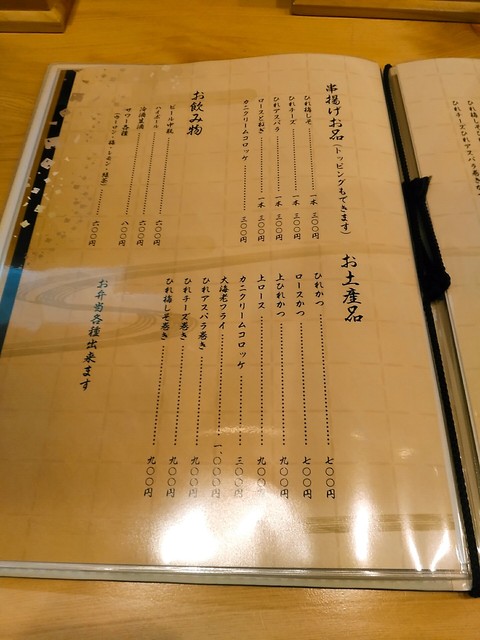 串揚げお品(トッピングもできます)
ひれ梅しそ 一本 三〇〇円
ひれチーズ 一本 三〇〇円
ひれアスパラ 一本 三〇〇円
ロースとねぎ 一本 三〇〇円
カニクリームコロッケ 三〇〇円
お飲み物
ビール中瓶
ハイボール 六〇〇円
冷酒生酒 六〇〇円
サワー各種 八〇〇円
(ウーロン・梅・レモン・緑茶) 六〇〇円
お土産品
ひれかつ 七〇〇円
ロースかつ 七〇〇円
上ひれかつ 九〇〇円
上ロース 九〇〇円
カニクリームコロッケ 三〇〇円
大海老フライ 一、〇〇〇円
ひれアスパラ巻き 九〇〇円
ひれチーズ巻き 九〇〇円
ひれ梅しそ巻き 九〇〇円
お弁当各種出来ます